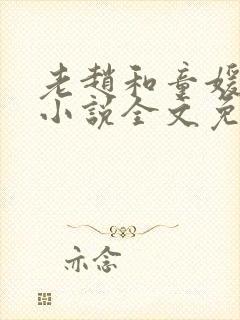 老趙和童媛
小說全文免
亦念